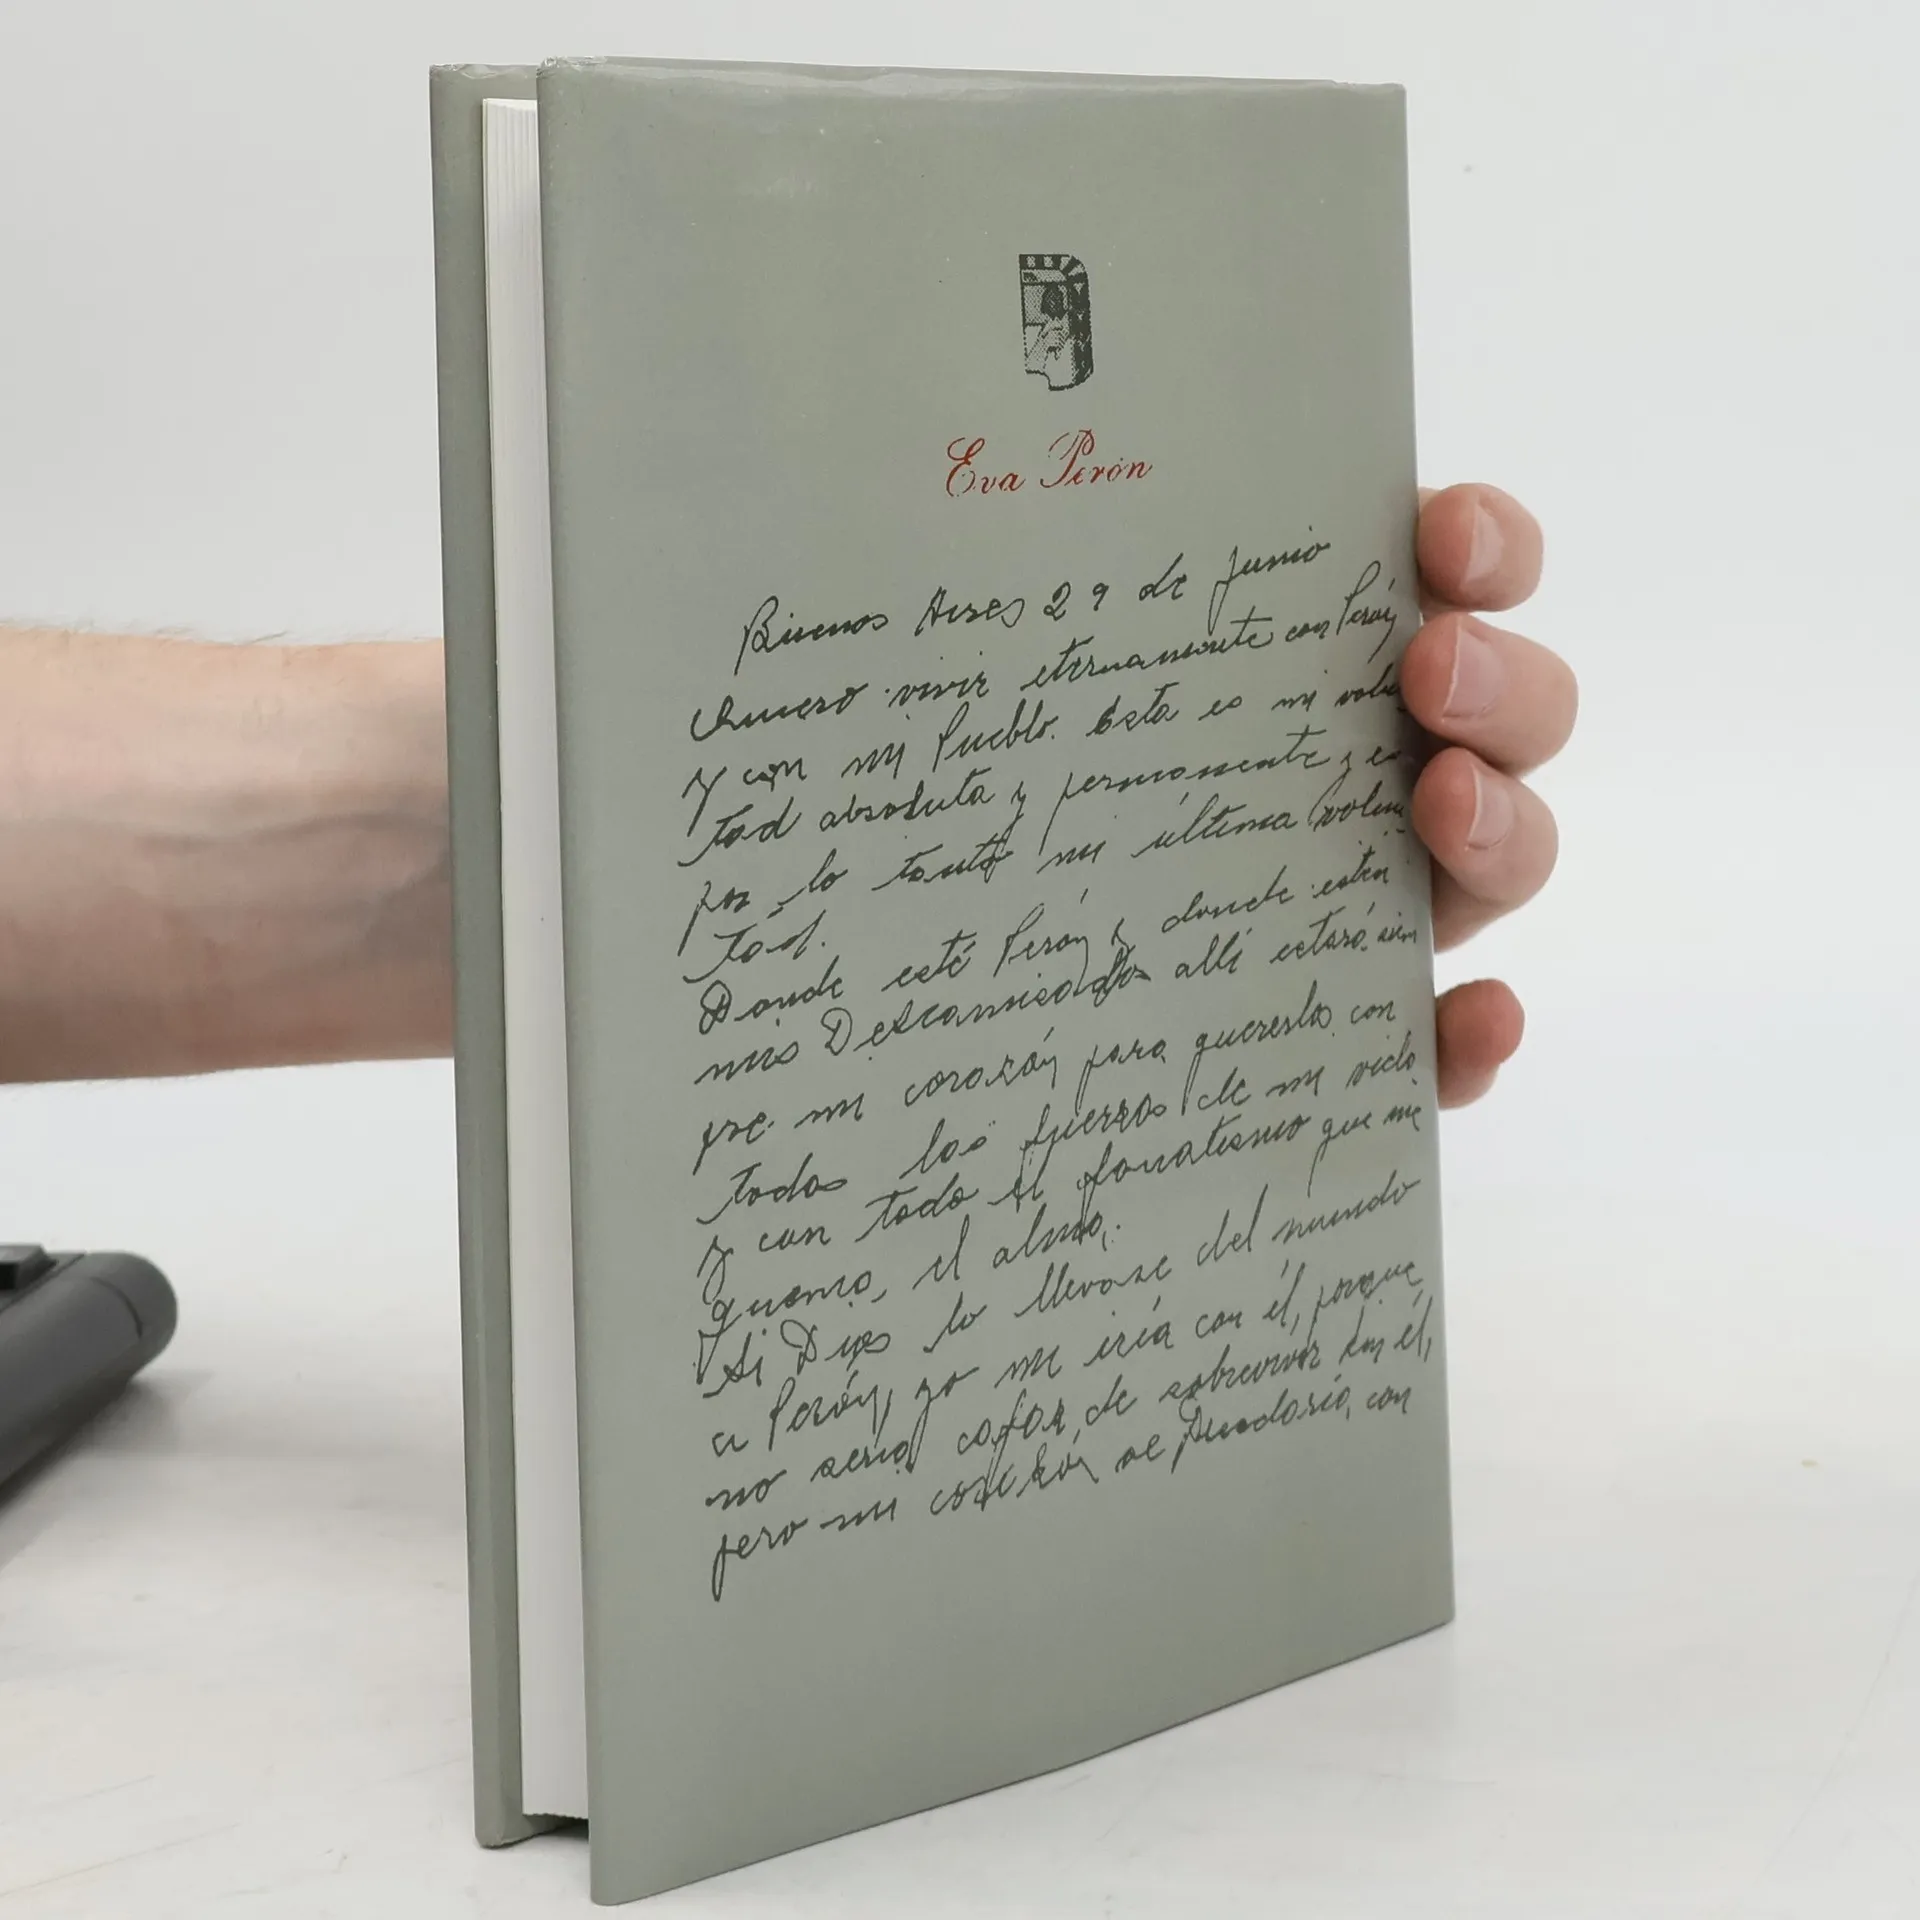 Eva Perón
Buenos Aires 29 de Junio
Quiero vivir eternamente con Perón
y con mi Pueblo. Esta es mi volun
tad absoluta y permanente y es
por lo tanto mi última volun
tad.
Donde esté Perón y donde estén
mis Descamisados allí estará siem
pre mi corazón para quererlos con
todas las fuerzas de mi vida
y con todo el fanatismo que me
quema el alma.
Si Dios lo llevase del mundo
a Perón, yo me iría con él, porque
no sería capaz de sobrevivir sin él,
pero mi corazón se quedaría, con